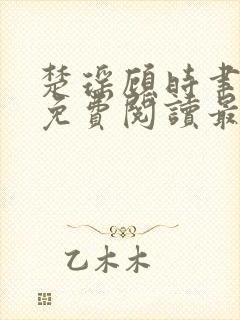 楚瑤顧時書
免費閱讀最
乙木木